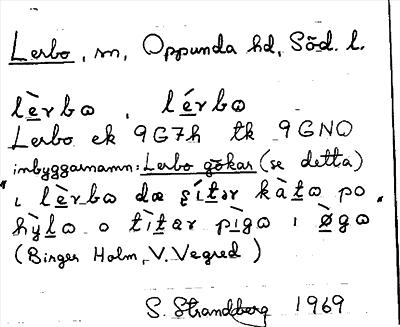 Lerbo, sn, Oppunda hd, Söd. l.
lèrbɷ, lérbɷ
Lerbo ek 9G7h tk 9GNO
inbyggarnamn: Lerbo gökar (se detta)
"ı lèrbɷ dæ ʂítər kàtɷ po
hỳlɷ o tìtər pìgɷ ı ø̀gɷ"
(Birger Holm, V. Vegred)
S. Strandberg 1969